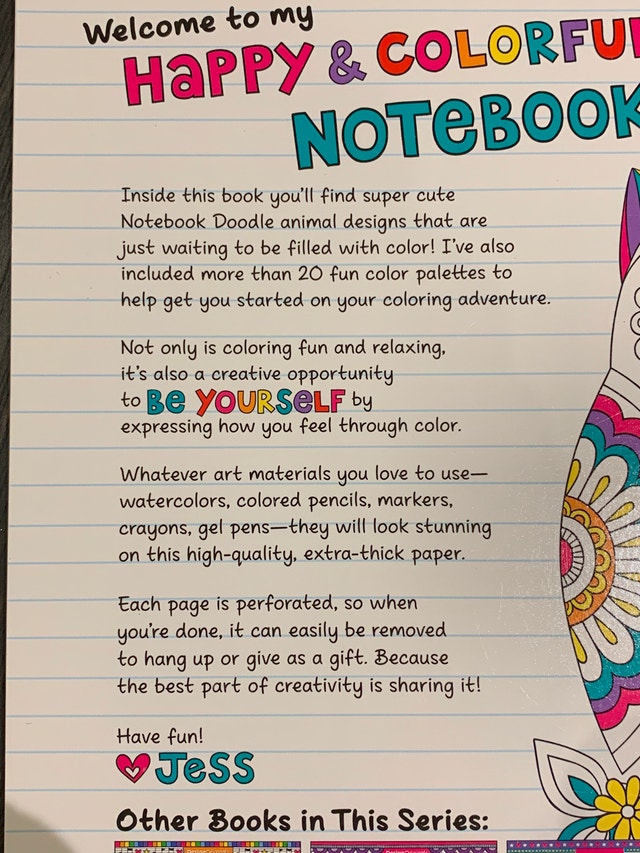 Welcome to my
HAPPY & COLORFU
NOTEBOOK
Inside this book you'll find super cute
Notebook Doodle animal designs that are
just waiting to be filled with color! I've also
included more than 20 fun color palettes to
help get you started on your coloring adventure.
Not only is coloring fun and relaxing,
it's also a creative opportunity
to Be YOURSeLF by
expressing how you feel through color.
Whatever art materials you love to use—
watercolors, colored pencils, markers,
crayons, gel pens—they will look stunning
on this high-quality, extra-thick paper.
Each page is perforated, so when
you're done, it can easily be removed
to hang up or give as a gift. Because
the best part of creativity is sharing it!
Have fun!
Jess
Other Books in This Series: